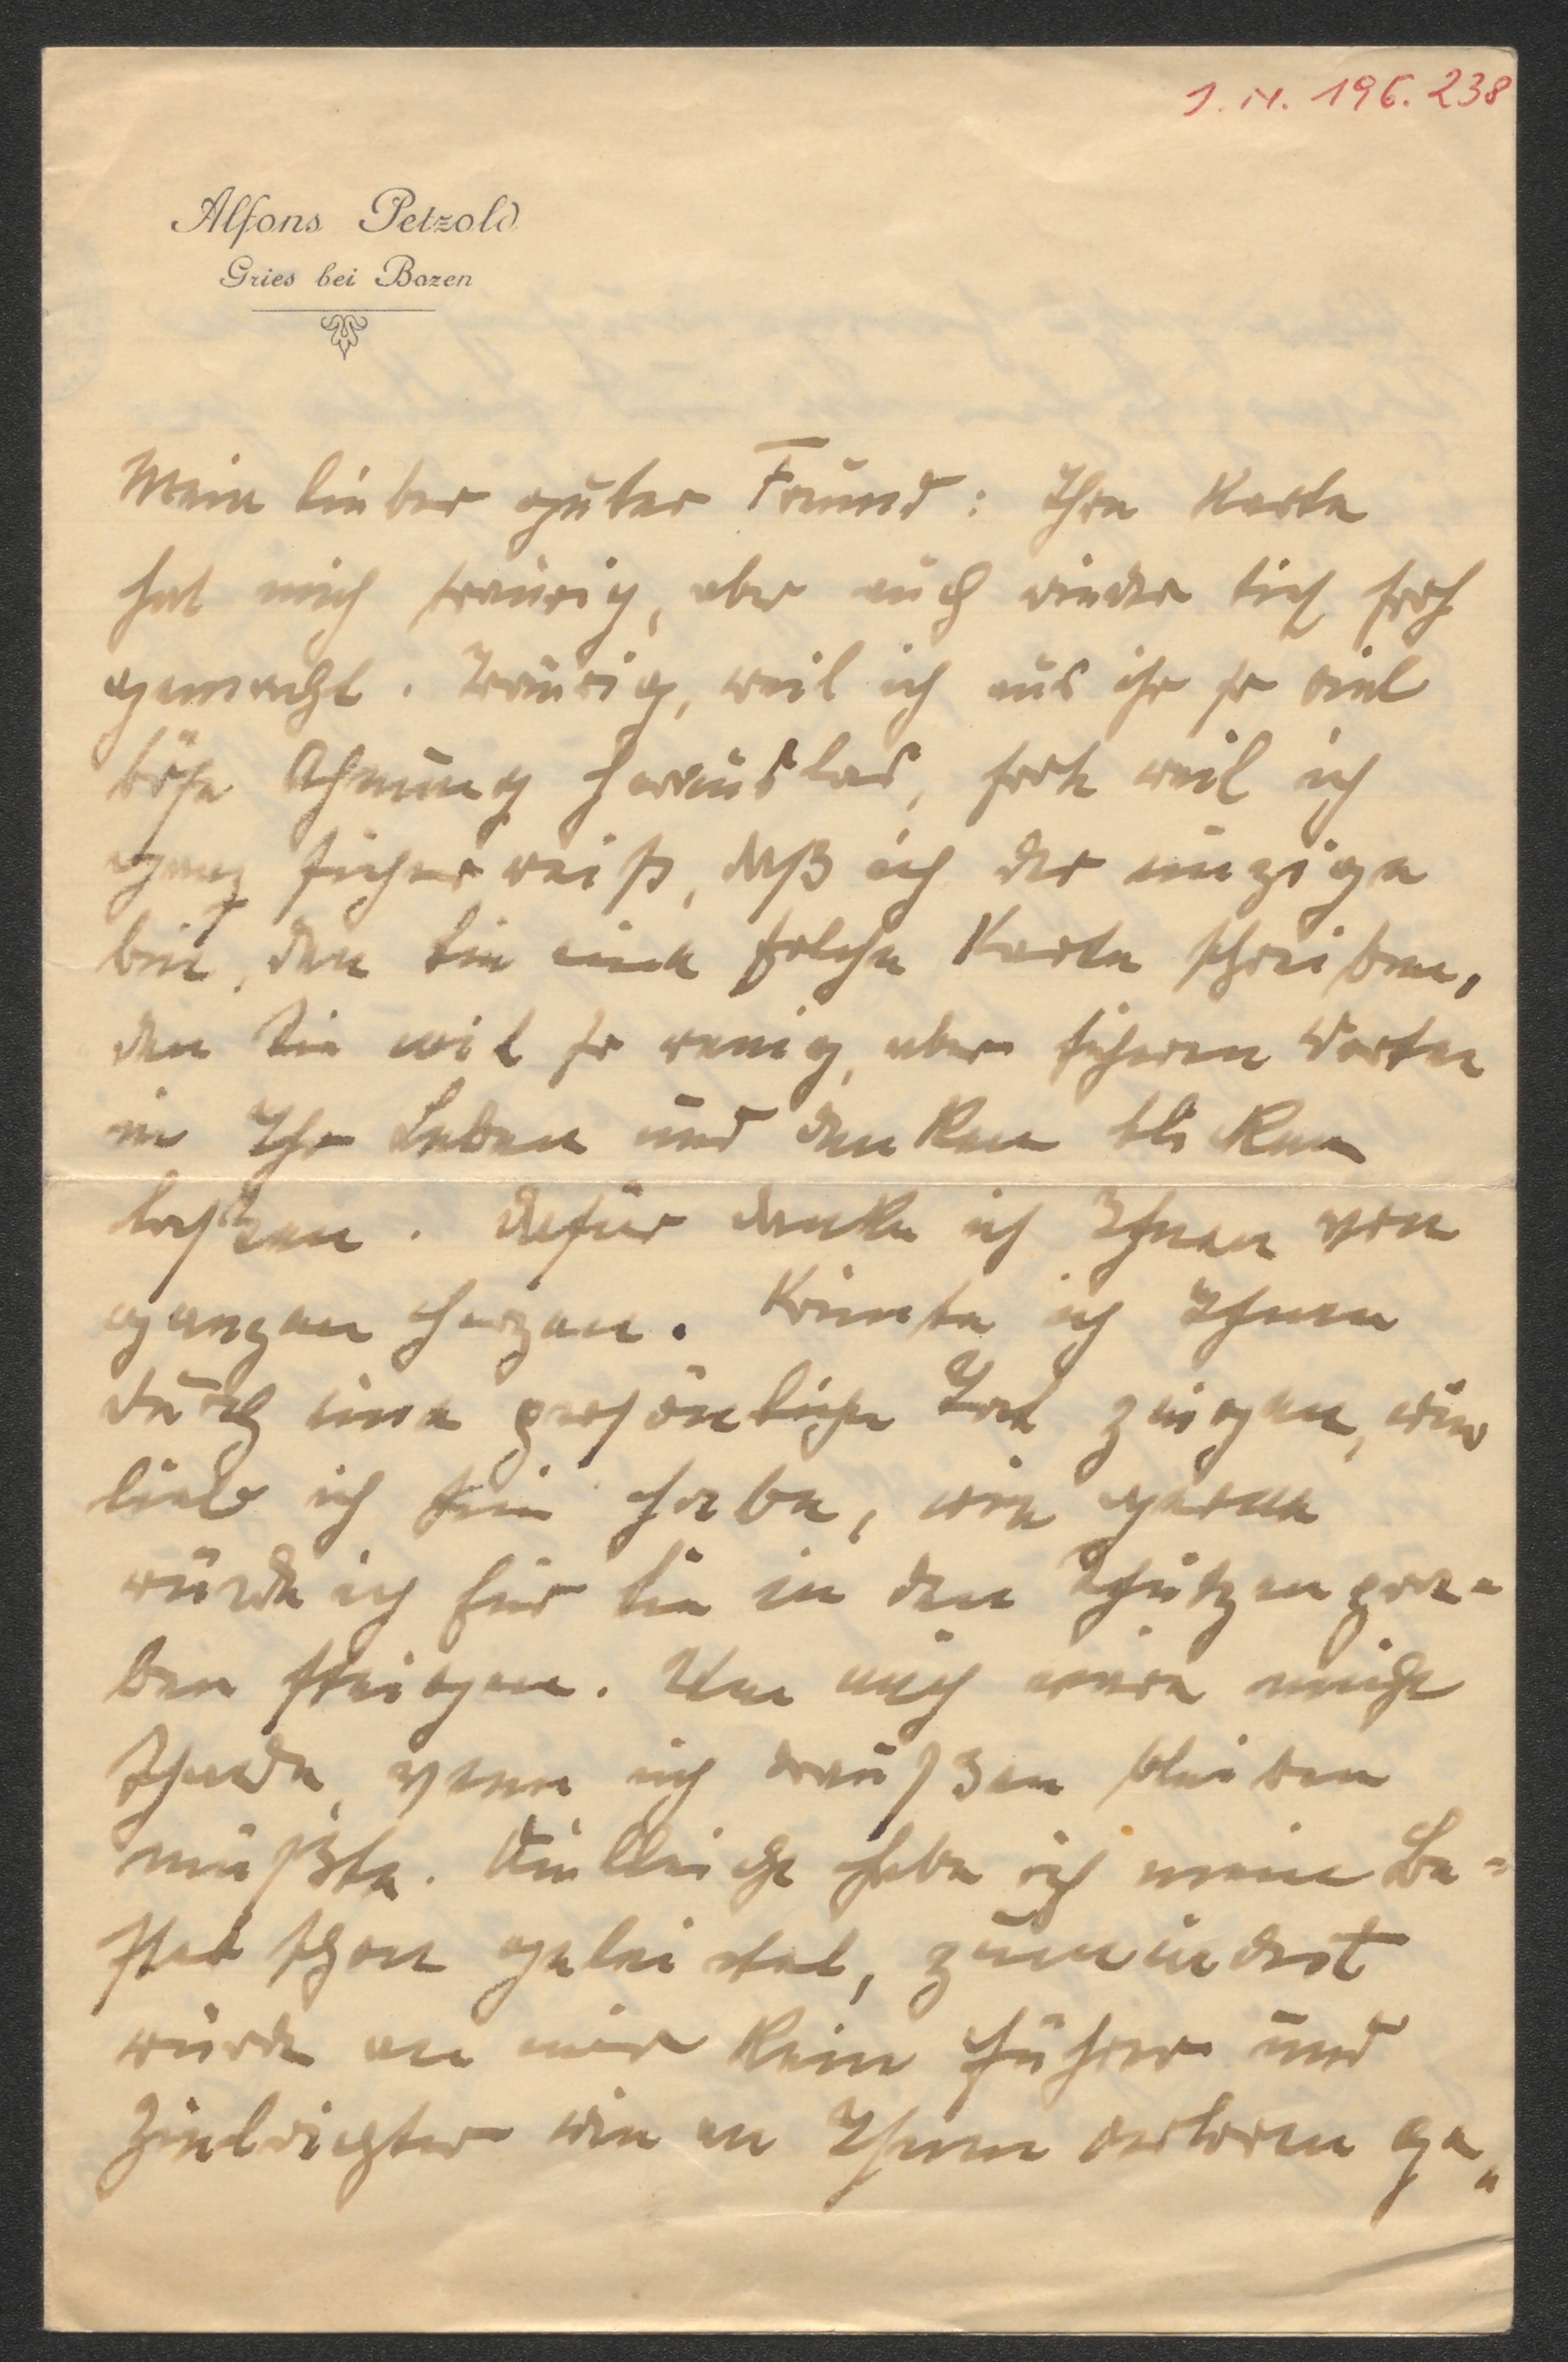 J. N. 196.238
Alfons Petzold
Gries bei Bozen
Mein lieber guter Freund: Ihre Karte
hat mich traurig, aber auch wieder tief froh
gemacht. Traurig, weil ich aus ihr so viel
böse Ahnung herauslas, froh weil ich
ganz sicher weiß, daß ich der einzige
bin, den Sie eine solche Karte schreiben,
den Sie mit so wenig, aber sicheren Worten
in Ihr Leben und denken blicken
lassen. Dafür danke ich Ihnen von
ganzen Herzen. Könnte ich Ihnen
durch eine persönliche Tat zeigen, wie
lieb ich Sie habe, wie gerne
würde ich für Sie in den Schützengra-
ben steigen. Um mich wäre nicht
schade, wenn ich draußen bleiben
müßte. Vielleicht habe ich mein Be-
stes schon geleistet, zumindest
würde an mir kein Führer und
Zielrichter wie an Ihnen verloren ge-